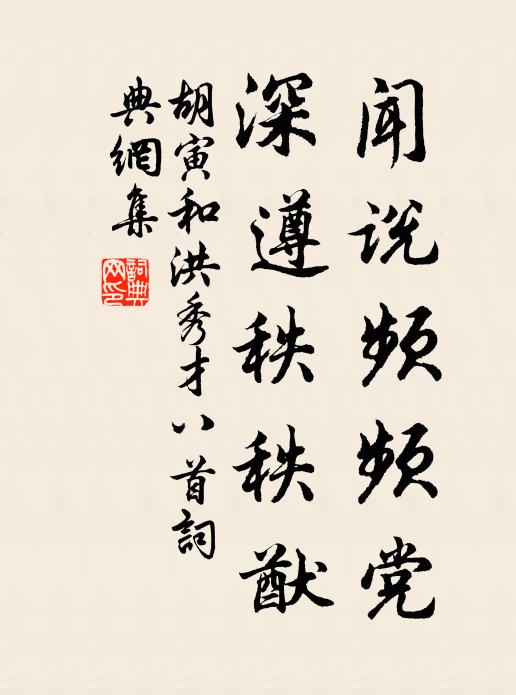 闻说频频党
深遵秩秩猷
胡寅和洪秀才八首詞
典網集
詞典
网印